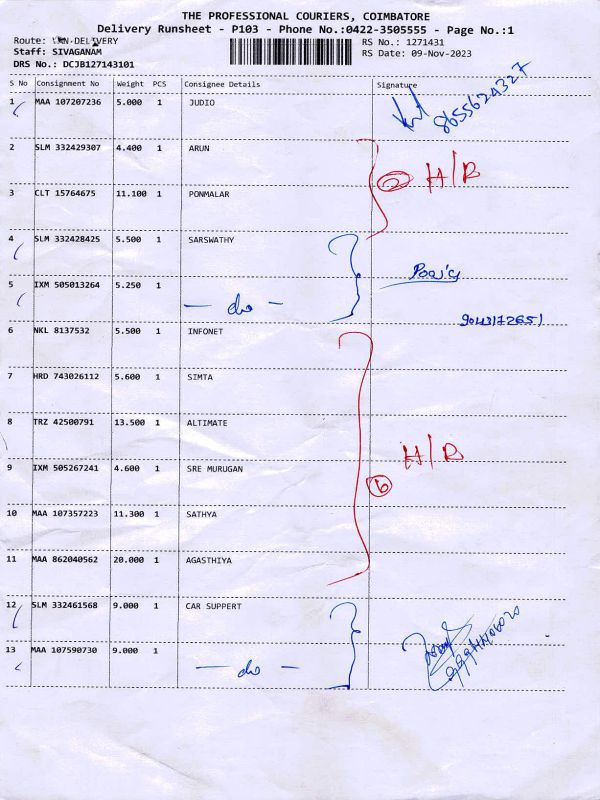 THE PROFESSIONAL COURIERS, COIMBATORE
Delivery Runsheet - P103 - Phone No.:0422-3505555 - Page No.:1
Route: VAN-DELIVERY
RS No.: 1271431
Staff: SIVAGANAM
RS Date: 09-Nov-2023
DRS No.: DCJB127143101
S No Consignment No Weight PCS Consignee Details Signature
1 MAA 107207236 5.000 1 JUDIO
8655624327
2 SLM 332429307 4.400 1 ARUN
② H/B
3 CLT 15764675 11.100 1 PONMALAR
4 SLM 332428425 5.500 1 SARSWATHY
5 IXM 505013264 5.250 1
— do —
9043172651
6 NKL 8137532 5.500 1 INFONET
7 HRD 743026112 5.600 1 SIMTA
8 TRZ 42500791 13.500 1 ALTIMATE
H/B
9 IXM 505267241 4.600 1 SRE MURUGAN
⑥
10 MAA 107357223 11.300 1 SATHYA
11 MAA 862040562 20.000 1 AGASTHIYA
12 SLM 332461568 9.000 1 CAR SUPPERT
13 MAA 107590730 9.000 1
— do —